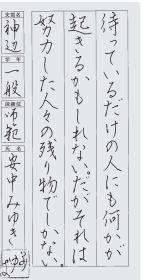 待っているだけの人にも何かが
起きるかもしれない。だがそれは
努力した人々の残り物でしかない。
支部名
神辺
学年
一般
段級位
師範
氏名
安中みゆき